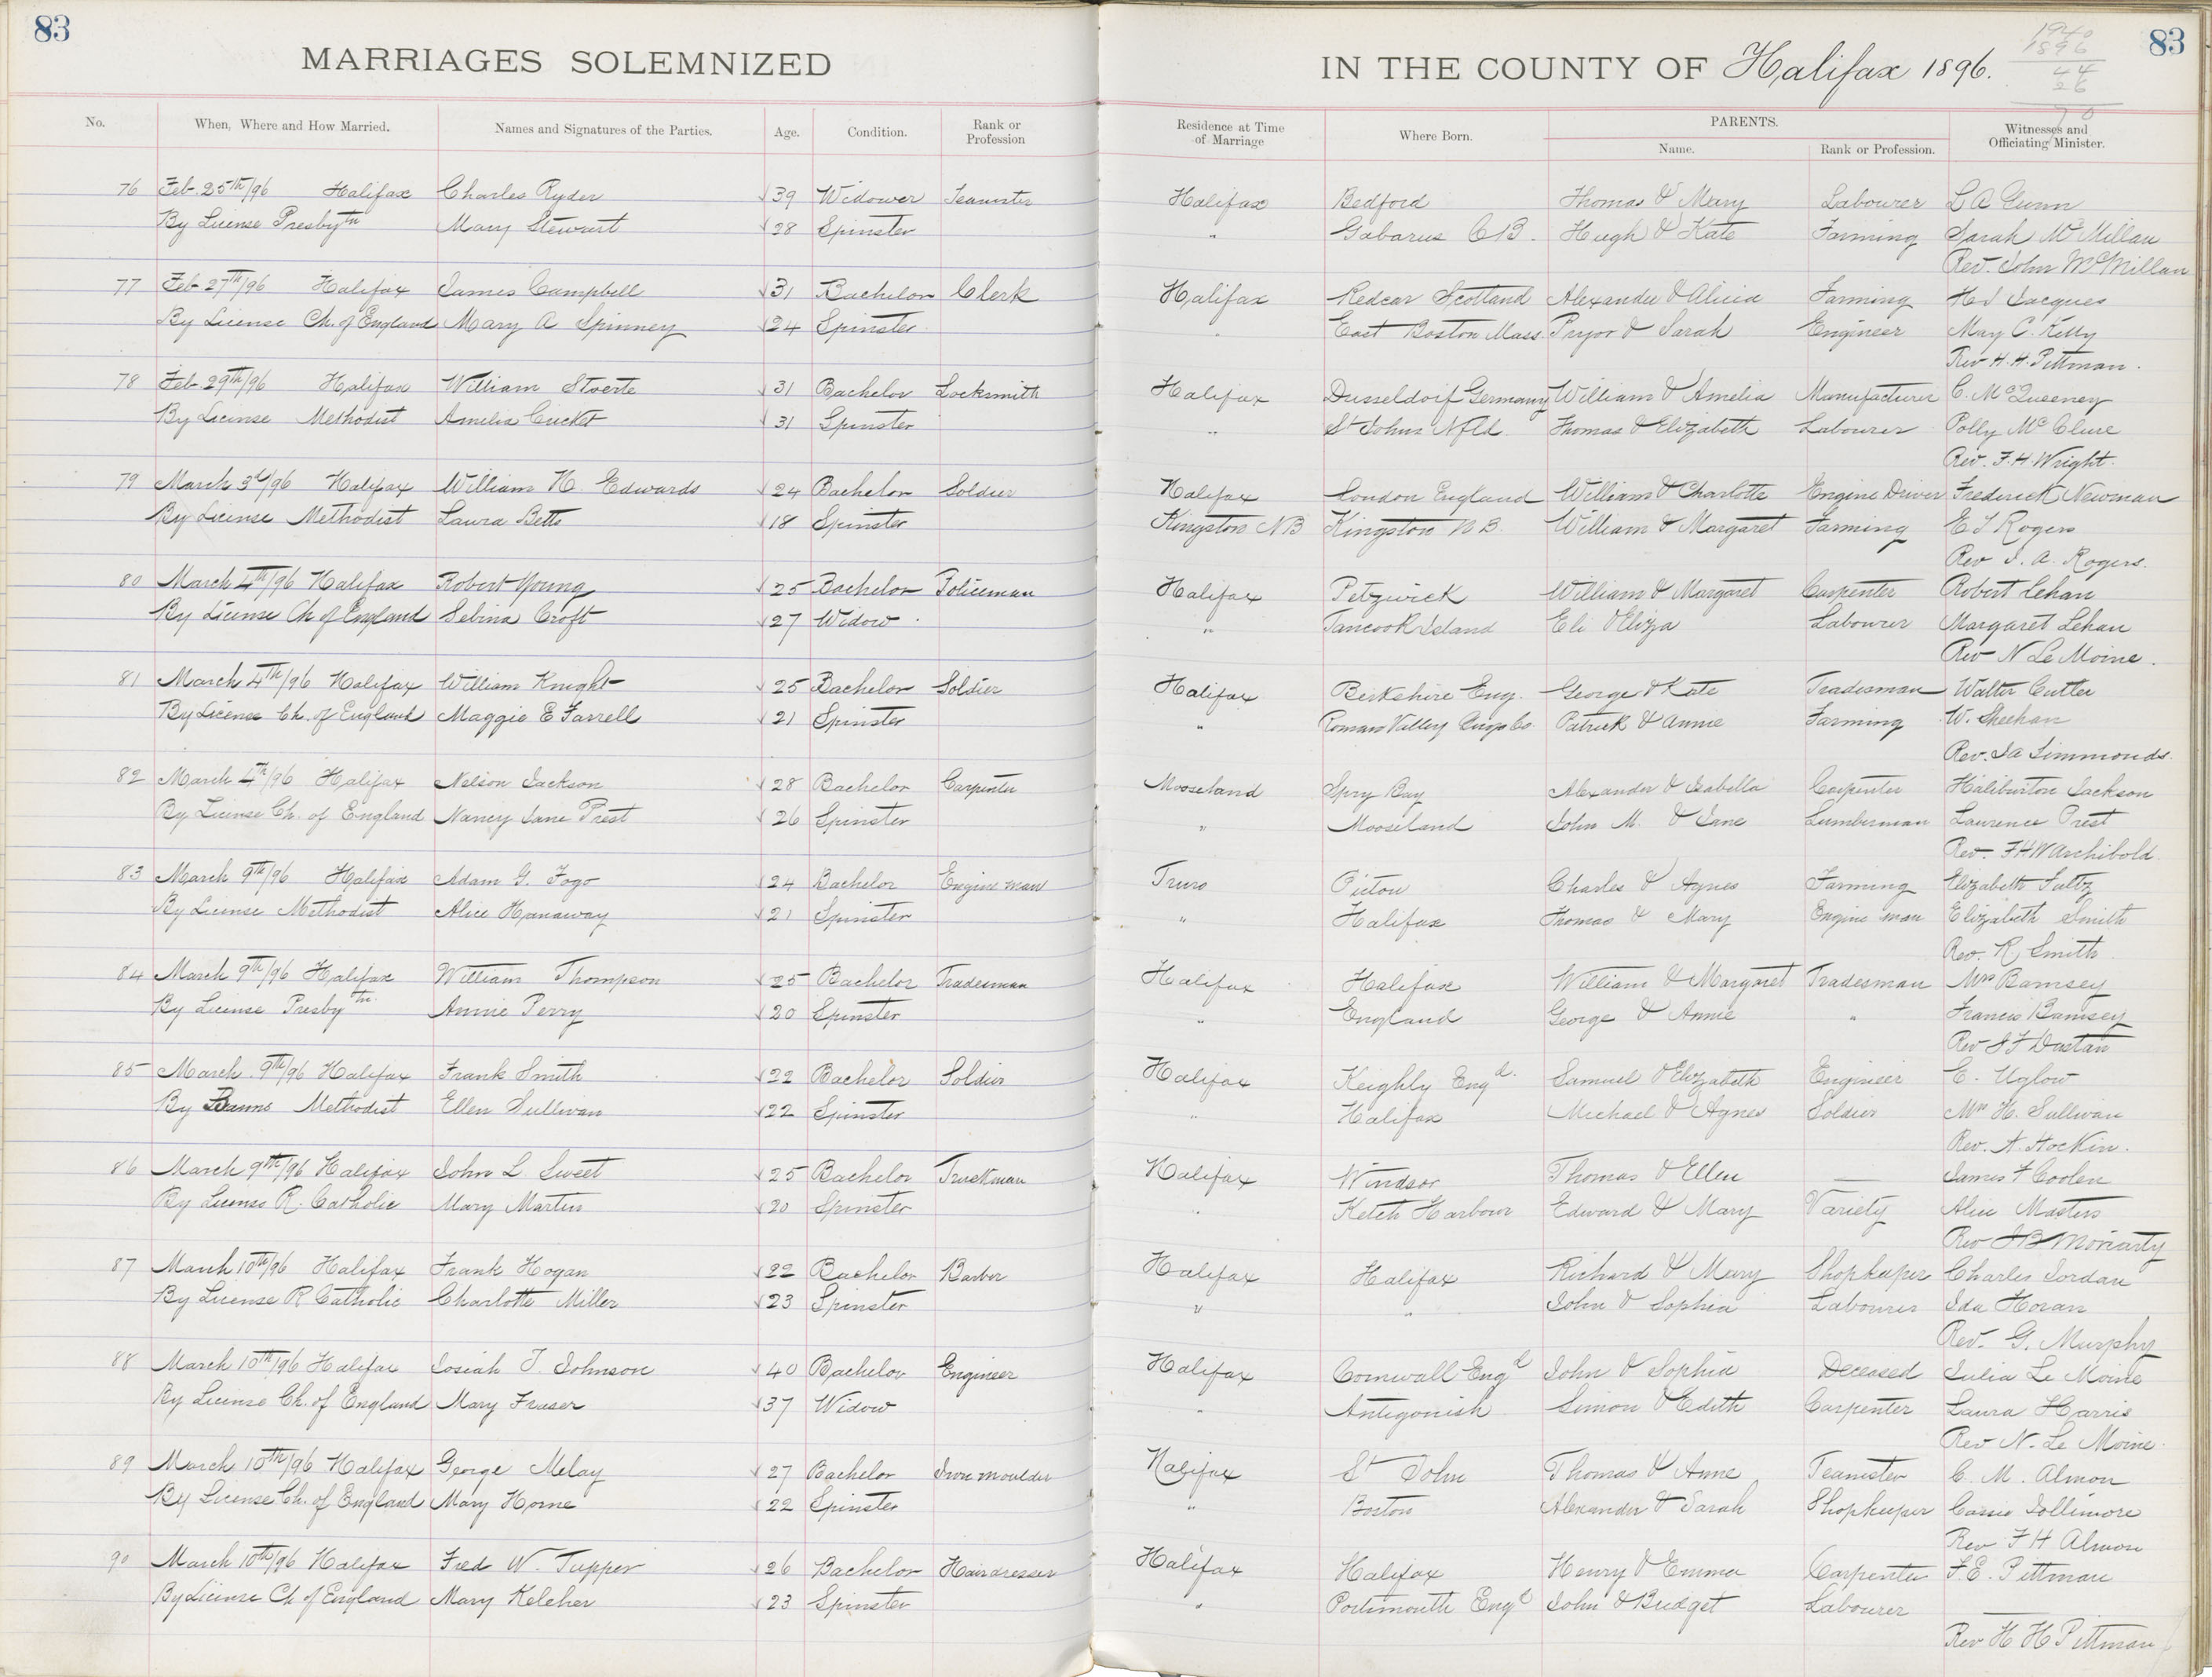 83
83
MARRIAGES SOLEMNIZED IN THE COUNTY OF Halifax 1896.
1940
1896
44
26
70
No. When, Where and How Married. Names and Signatures of the Parties. Age. Condition. Rank or Profession Residence at Time of Marriage Where Born. PARENTS. Name. Rank or Profession. Witnesses and Officiating Minister.
76 Feb. 25th/96 Halifax Charles Ryder 39 Widower Teamster Halifax Bedford Thomas & Mary Labourer L A Gunn
By License Presbytn Mary Stewart 28 Spinster " Gabarus C B. Hugh & Kate Farming Sarah McMillan
Rev. John McMillan
77 Feb 27th/96 Halifax James Campbell 31 Bachelor Clerk Halifax Redcar Scotland Alexander & Alicia Farming H S Jacques
By License Ch. of England Mary A Spinney 24 Spinster " East Boston Mass. Pryor & Sarah Engineer May C. Kelly
Rev H. H. Pittman.
78 Feb 29th/96 Halifax William Stoerte 31 Bachelor Locksmith Halifax Dusseldorf Germany William & Amelia Manufacturer C. McQueeney
By License Methodist Amelia Cricket 31 Spinster " St Johns Nfld. Thomas & Elizabeth Labourer Polly McClure
Rev. F. H. Wright.
79 March 3d/96 Halifax William H. Edwards 24 Bachelor Soldier Halifax London England William & Charlotte Engine Driver Frederick Newman
By License Methodist Laura Betts 18 Spinster Kingston N B Kingston N B. William & Margaret Farming E J Rogers
Rev J. A. Rogers.
80 March 4th/96 Halifax Robert Young 25 Bachelor Policeman Halifax Petzwick William & Margaret Carpenter Robert Lehan
By License Ch of England Sebina Croft 27 Widow. " Tancook Island Eli & Eliza Labourer Margaret Lehan
Rev N Le Moine.
81 March 4th/96 Halifax William Knight 25 Bachelor Soldier Halifax Berkshire Eng. George & Kate Tradesman Walter Cutler
By License Ch. of England Maggie E Farrell 21 Spinster " Roman Valley Guys Co. Patrick & Annie Farming W. Sheehan
Rev. Ja Simmonds.
82 March 4th/96 Halifax Nelson Jackson 28 Bachelor Carpenter Mooseland Spry Bay Alexander & Isabella Carpenter Haliburton Jackson
By License Ch. of England Nancy Jane Prest 26 Spinster " Mooseland John M. & Jane Lumberman Laurence Prest
Rev. F H W Archibold
83 March 9th/96 Halifax Adam G. Fogo 24 Bachelor Engine man Truro Pictou Charles & Agnes Farming Elizabeth Fultz
By License Methodist Alice Hanaway 21 Spinster " Halifax Thomas & Mary Engine man Elizabeth Smith
Rev. R Smith.
84 March 9th/96 Halifax William Thompson 25 Bachelor Tradesman Halifax Halifax William & Margaret Tradesman Mrs Bamsey
By License Presbytn. Annie Perry 20 Spinster " England George & Annie " Francis Bamsey
Rev J F Dustan
85 March 9th/96 Halifax Frank Smith 22 Bachelor Soldier Halifax Keighly Engd. Samuel & Elizabeth Engineer E. Uglow
By Banns Methodist Ellen Sullivan 22 Spinster " Halifax Michael & Agnes Soldier Mrs H. Sullivan
Rev. A. Hockin.
86 March 9th/96 Halifax John L Sweet 25 Bachelor Truckman Halifax Windsor Thomas & Ellen — James F Coolen
By License R. Catholic Mary Martin 20 Spinster " Ketch Harbour Edward & Mary Variety Alice Masters
Rev J B Moriarty
87 March 10th/96 Halifax Frank Hogan 22 Bachelor Barber Halifax Halifax Richard & Mary Shopkeeper Charles Jordan
By License R Catholic Charlotte Miller 23 Spinster " " John & Sophia Labourer Ida Horan
Rev. G. Murphy
88 March 10th/96 Halifax Josiah T. Johnson 40 Bachelor Engineer Halifax Cornwall Engd John & Sophia Deceased Julia Le Moine
By License Ch. of England Mary Fraser 37 Widow " Antigonish Simon & Edith Carpenter Laura Harris
Rev N. Le Moine.
89 March 10th/96 Halifax George Melay 27 Bachelor Iron moulder Halifax St John Thomas & Anne Teamster C. M. Almon
By License Ch. of England Mary Horne 22 Spinster " Boston Alexander & Sarah Shopkeeper Jollimore
Rev F H Almon
90 March 10th/96 Halifax Fred W. Tupper 26 Bachelor Hairdresser Halifax Halifax Henry & Emma Carpenter F. E. Pittman
By License Ch of England Mary Keleher 23 Spinster " Portsmouth Engd John & Bridget Labourer —
Rev H H Pittman